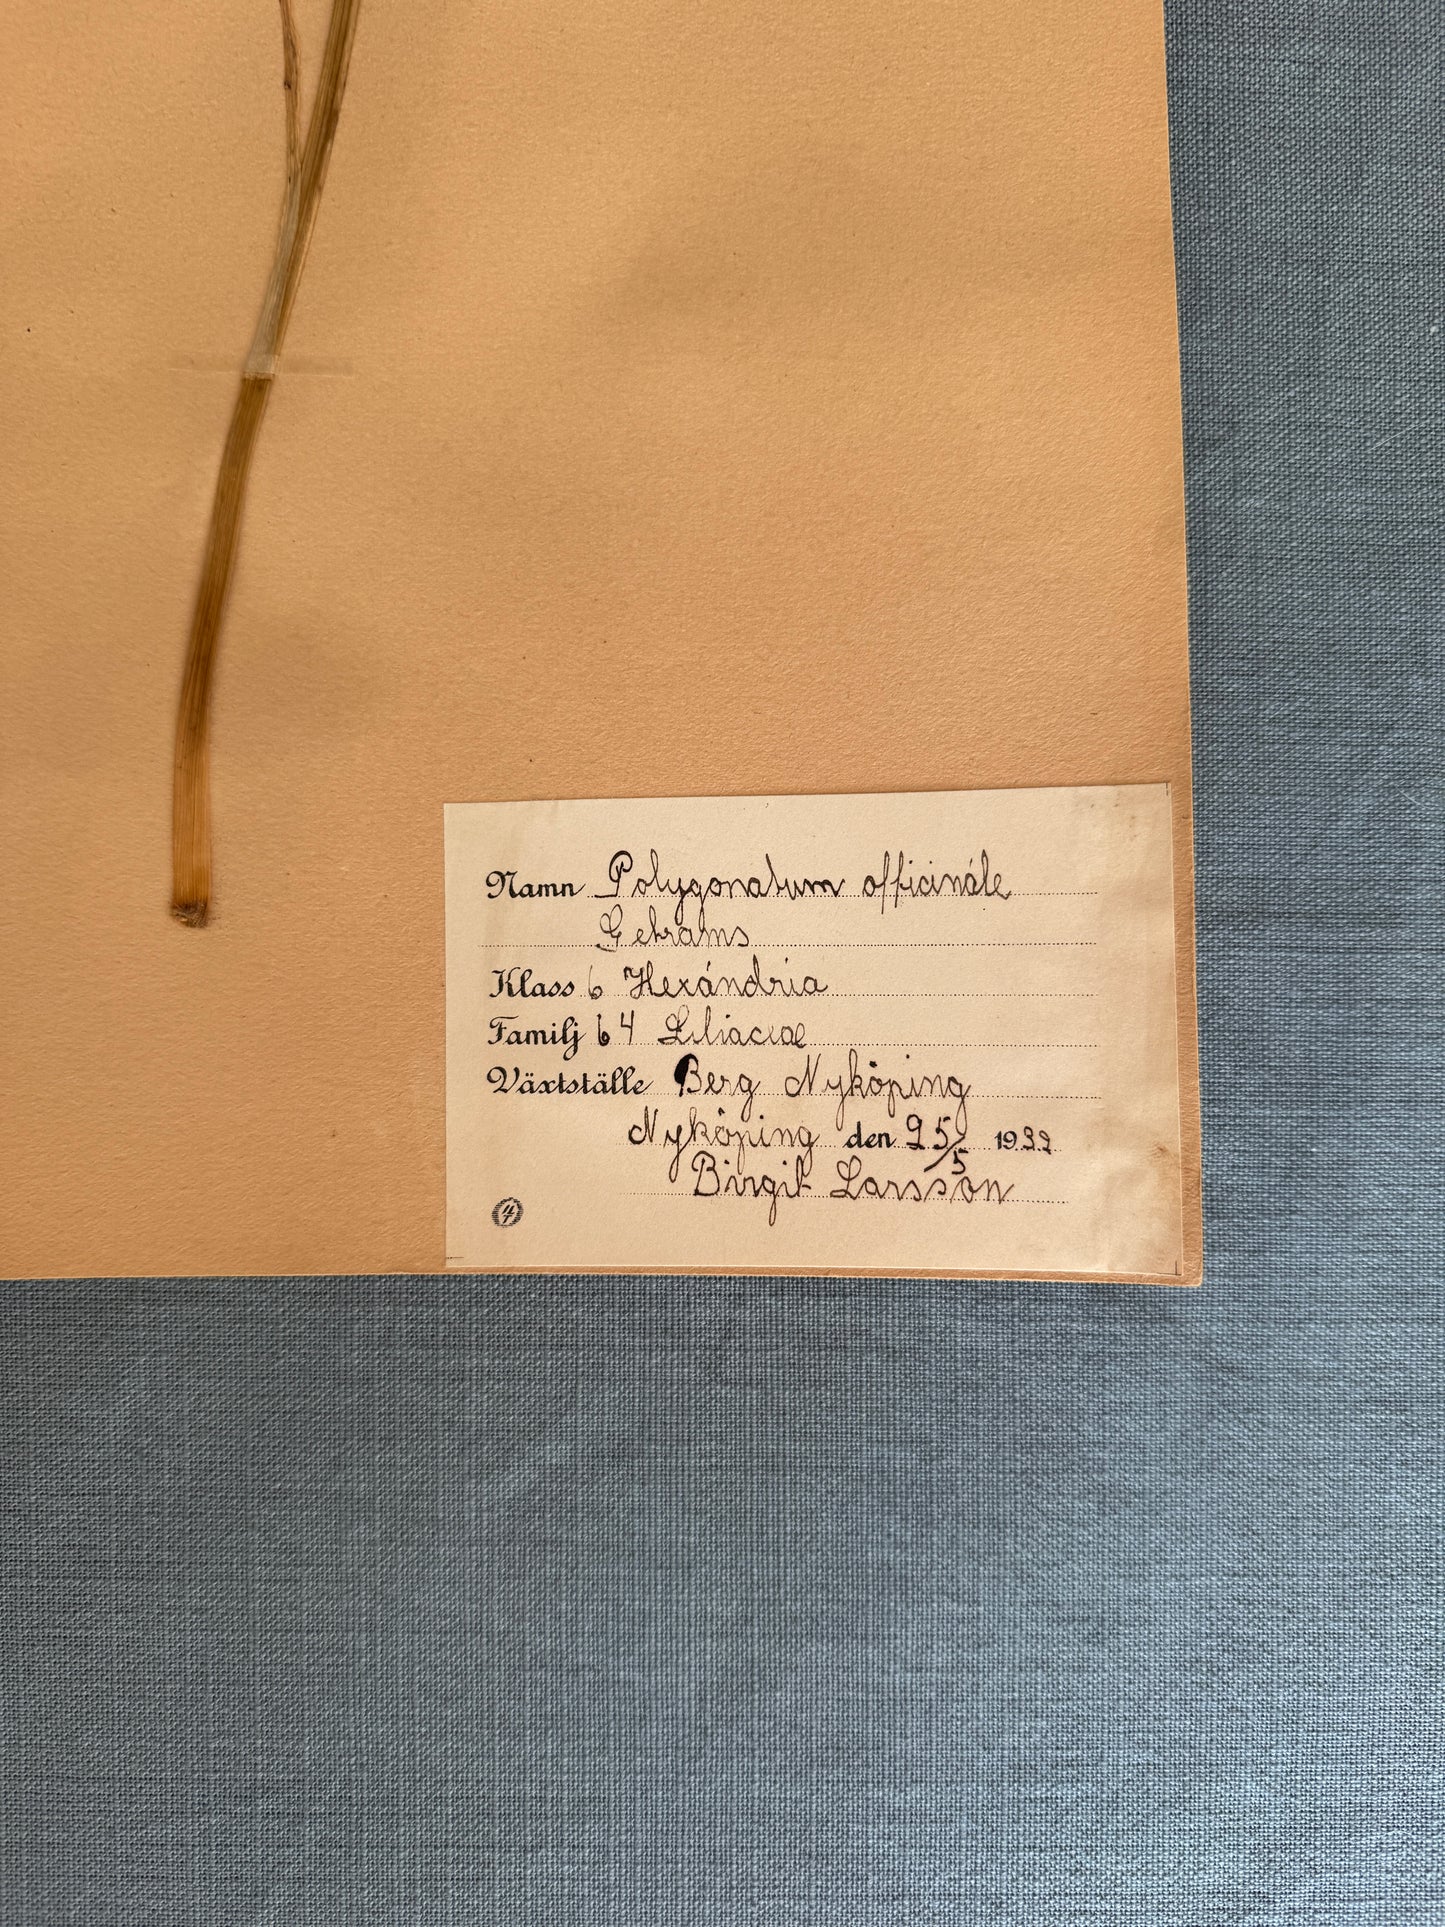 Namn Polygonatum officinále
Getrams
Klass 6 Hexándria
Familj 64 Liliaceae
Växtställe Berg Nyköping
Nyköping den 25/5 1932
Birgit Larsson